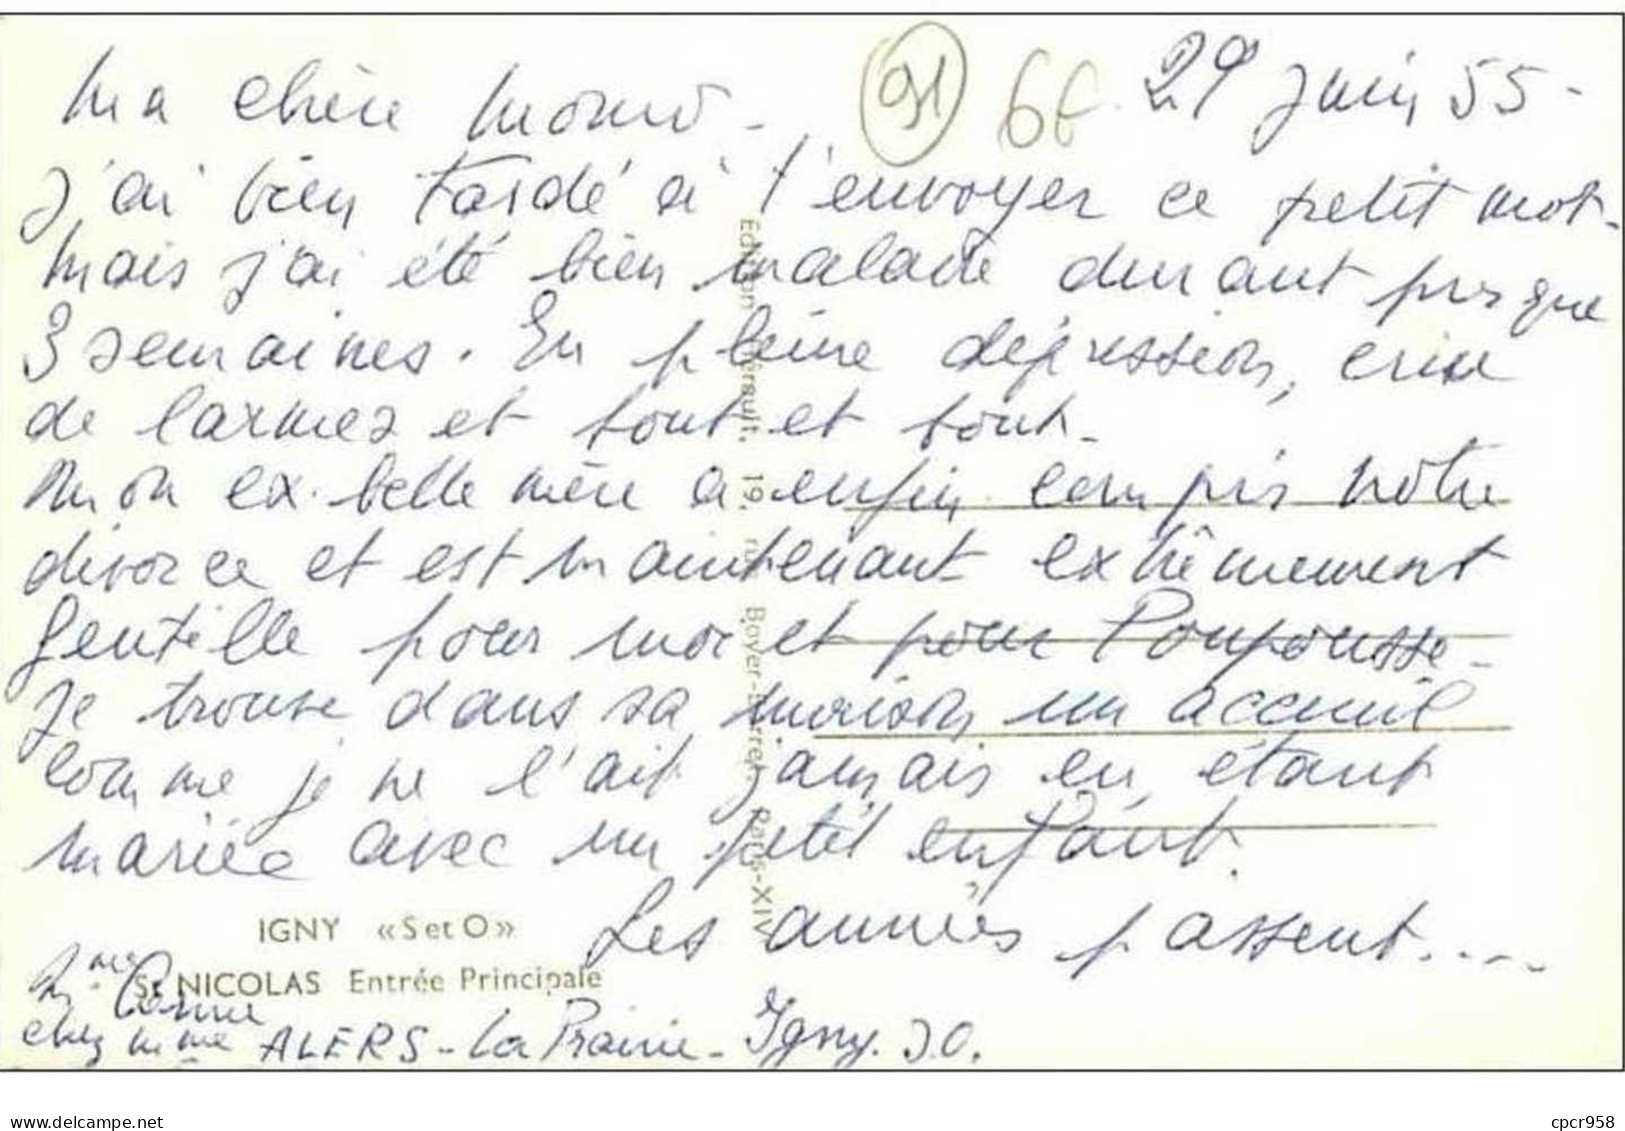 Ma chère Momo - 91 6f 29 juin 55 -
J'ai bien tardé à t'envoyer ce petit mot -
Mais j'ai été bien malade durant presque
3 semaines. En pleine dépression, crise
de larmes et tout et tout -
Mon ex. belle mère a enfin compris notre
divorce et est maintenant extrêmement
gentille pour moi et pour Poupousse -
Je trouve dans sa maison un accueil
comme je ne l'ait jamais eu étant
mariée avec un petit enfant.
Les années passent....
IGNY «S et O»
St NICOLAS Entrée Principale
Mme
chez Mme ALERS - La Prairie - Igny. S.O.
Edition 19, rue Boyer-Barret. Paris-XIV
delcampe.net
cpcr958